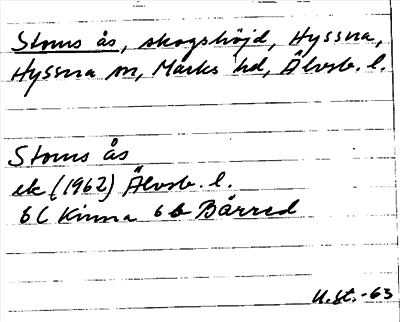 Stoms ås, skogshöjd, Hyssna,
Hyssna sn, Marks hd, Älvsb. l.
Stoms ås
ek (1962) Älvsb. l.
6C Kinna 6b Bårred
U.St.-63